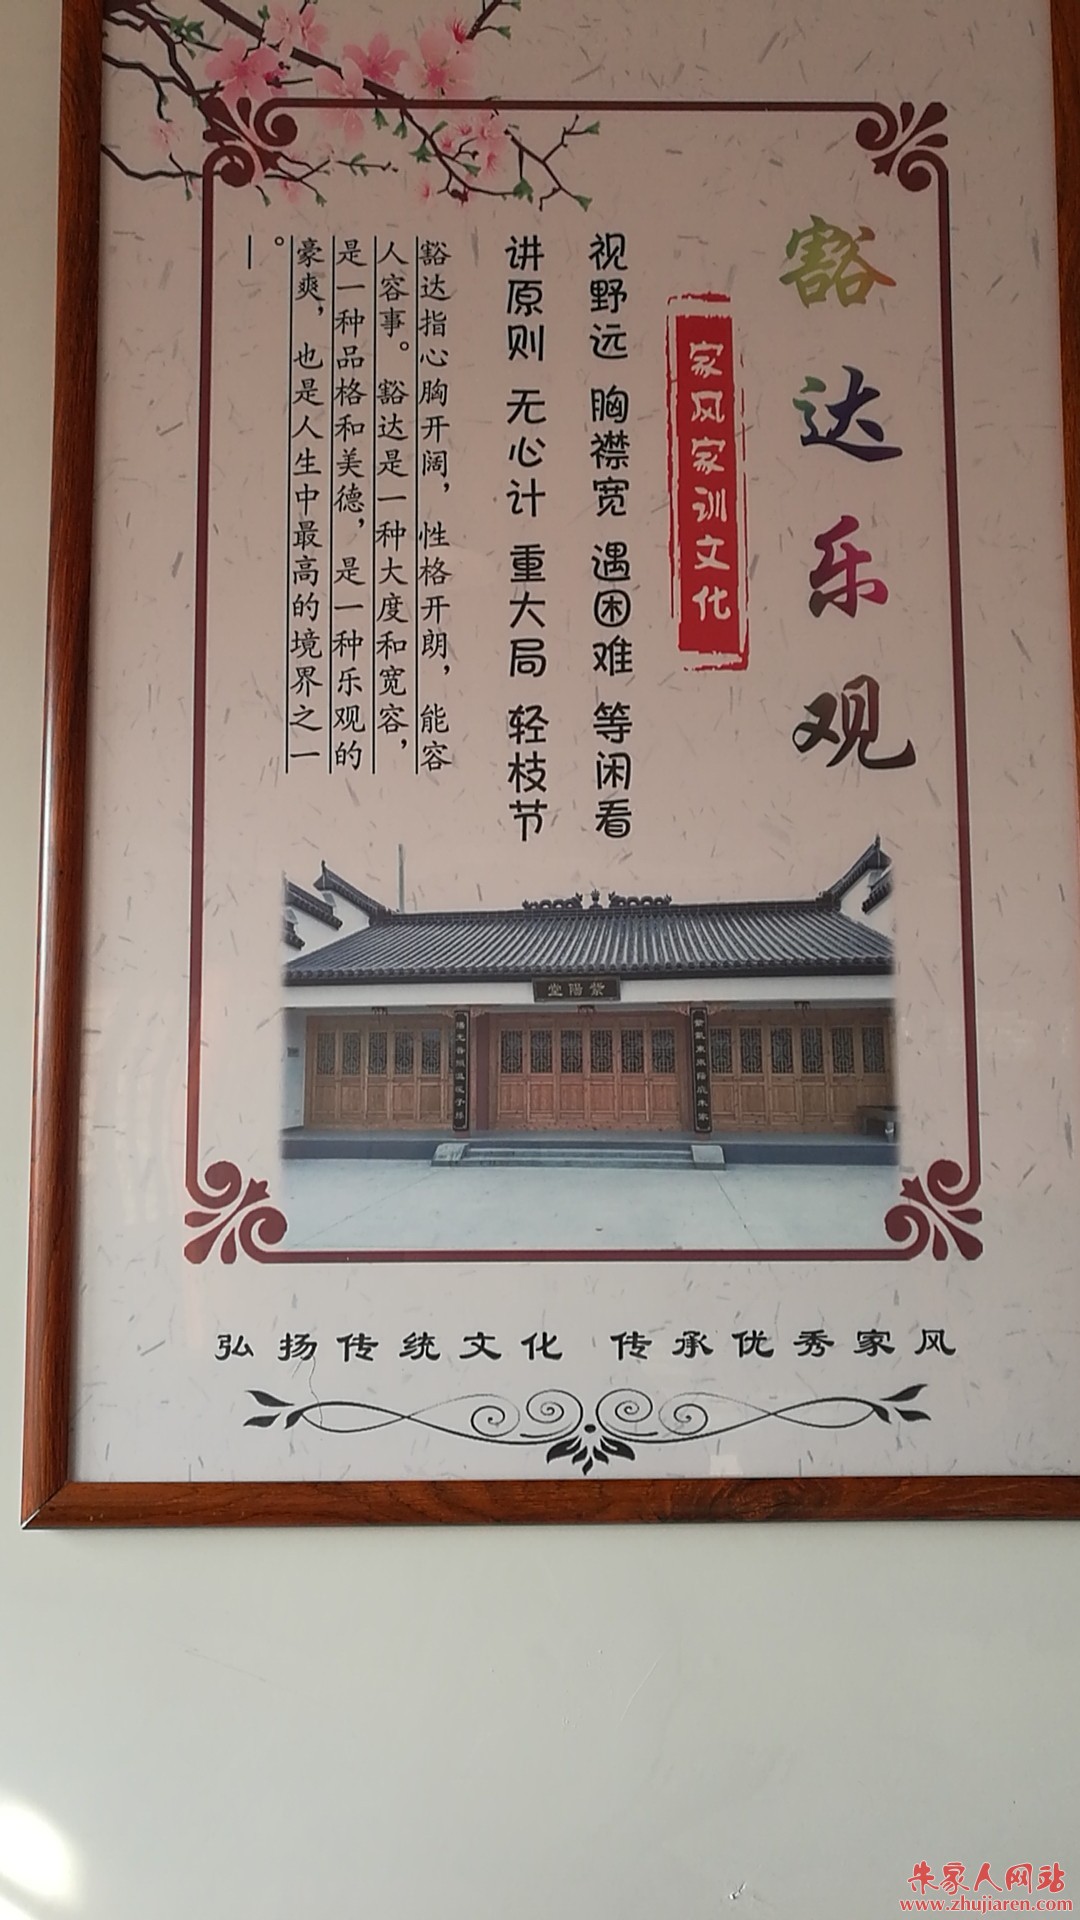 豁达乐观
家风家训文化
视野远 胸襟宽 遇困难 等闲看
讲原则 无心计 重大局 轻枝节
豁达指心胸开阔，性格开朗，能容
人容事。豁达是一种大度和宽容，
是一种品格和美德，是一种乐观的
豪爽，也是人生中最高的境界之一
。
紫陽堂
弘扬传统文化 传承优秀家风
朱家人网站
www.zhujiaren.com